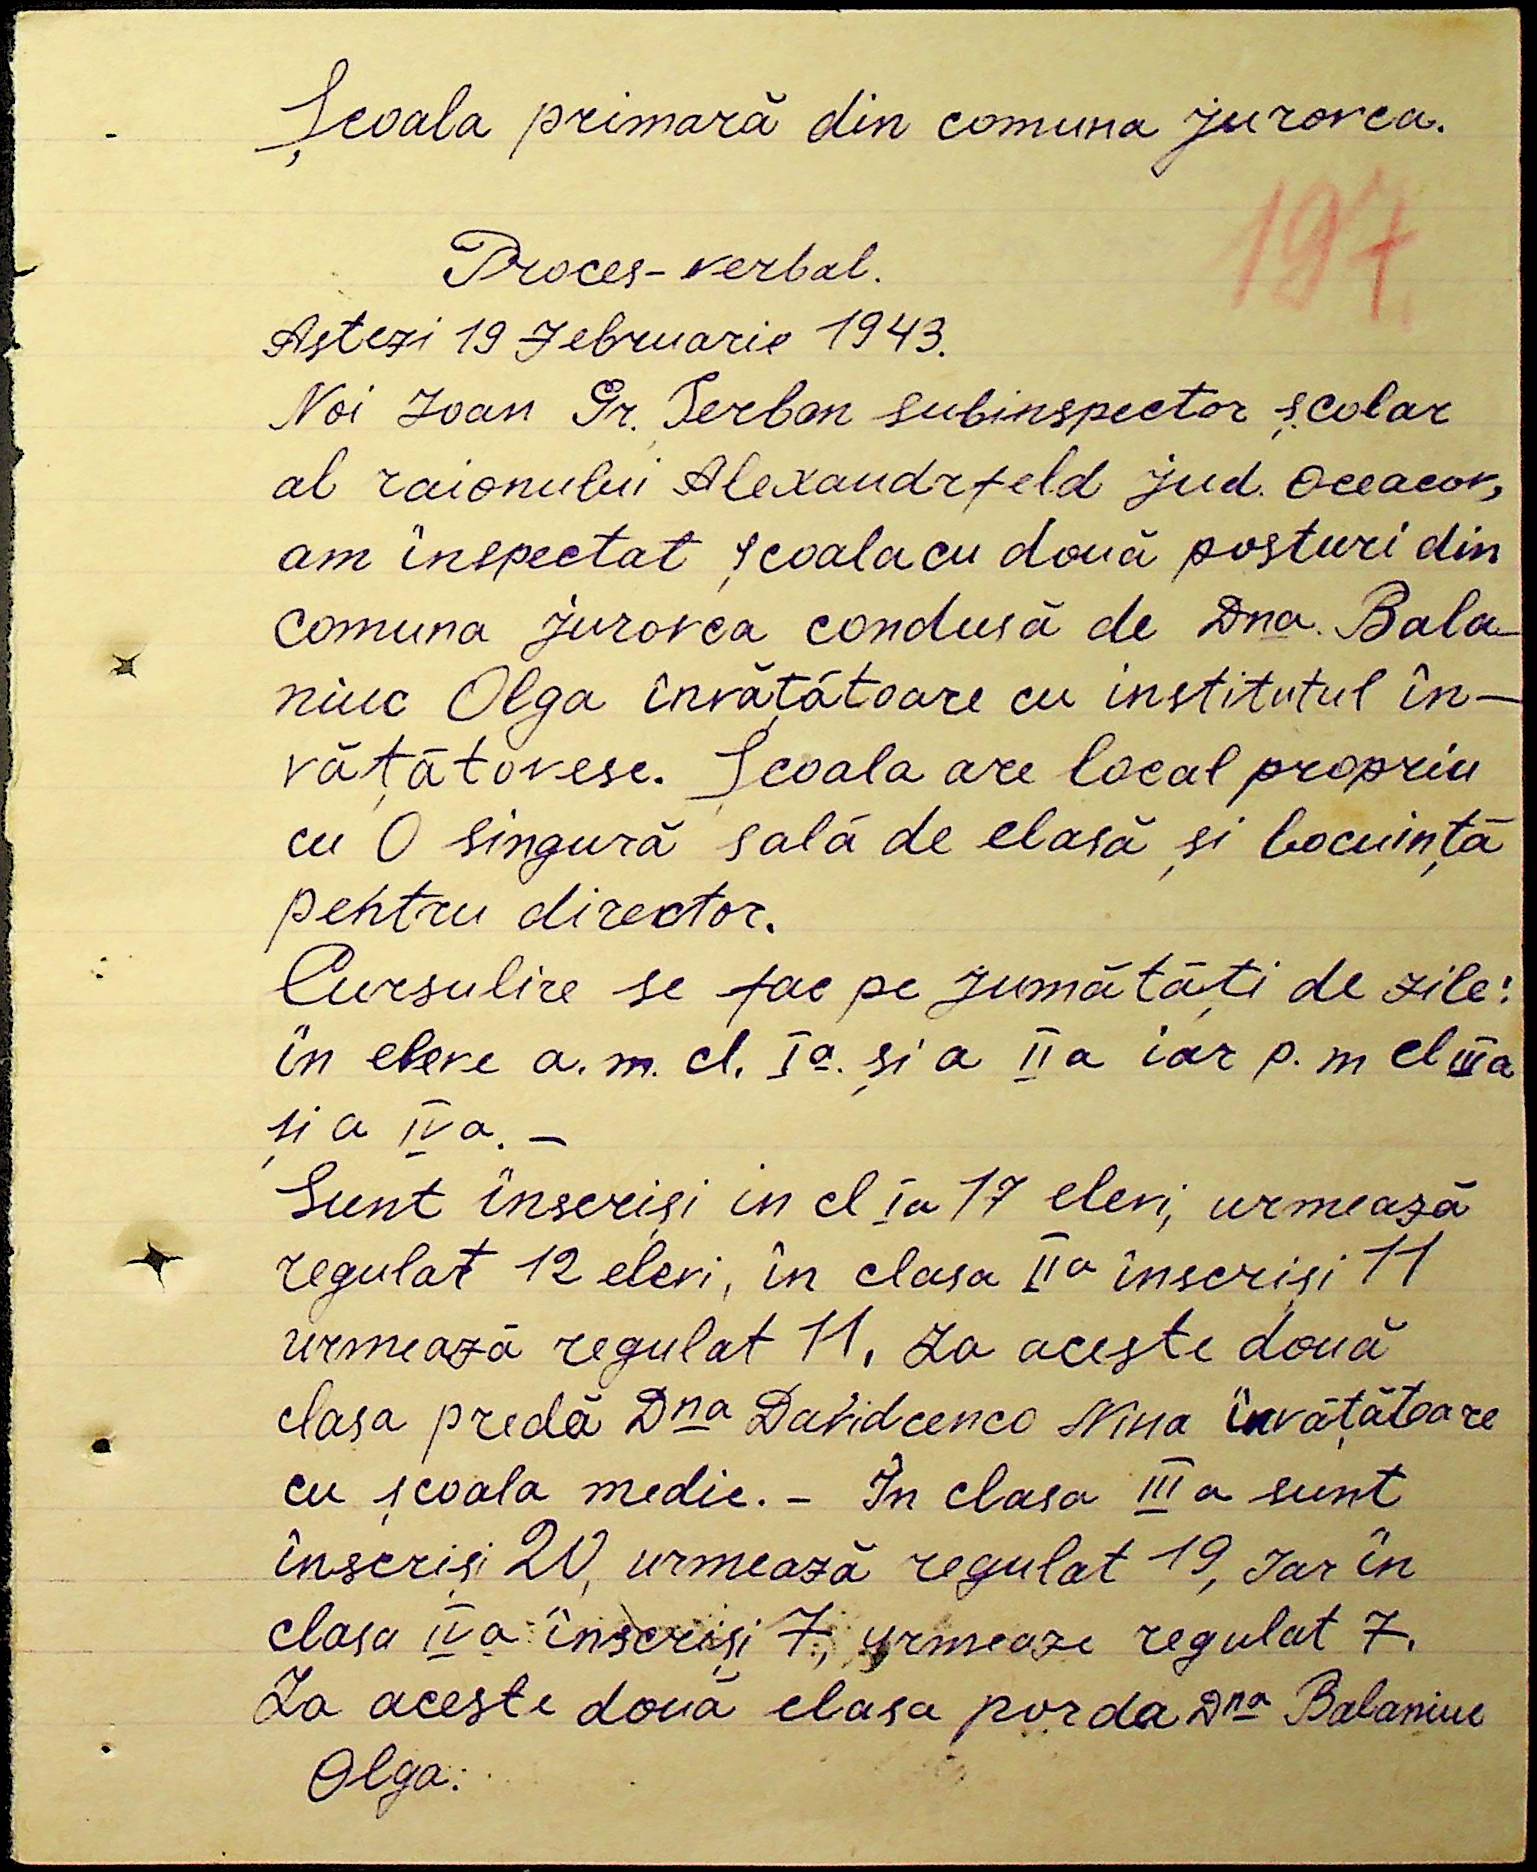 Școala primară din comuna jurovca.
197
Proces-verbal.
Aștezi 19 Februarie 1943.
Noi Ioan Gr. Șerban subinspector școlar
al raionului Alexandrfeld jud. Oceacov,
am inspectat școala cu două posturi din
comuna jurovca condusă de Dna. Bala-
niuc Olga învățătoare cu institutul în-
vățătoresc. Școala are local propriu
cu O singură sală de clasă și locuință
pentru director.
Cursulire se fac pe jumătăți de zile:
în elere a.m. cl. Ia. și a IIa iar p.m cl IIIa
și a IVa. -
Sunt înscriși in cl Ia 17 elevi, urmează
regulat 12 elevi, în clasa IIa înscriși 11
urmează regulat 11, La aceste două
clasa predă Dna Davidcenco Nina învățătoare
cu școala medie. - În clasa IIIa sunt
înscriși 20, urmează regulat 19, Iar în
clasa IVa înscriși 7, urmeaze regulat 7.
La aceste două clasa porda Dna Balaniuc
Olga.